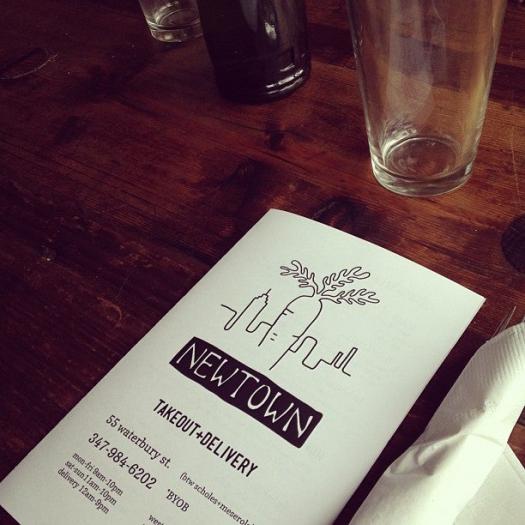 NEWTOWN
TAKEOUT+DELIVERY
55 waterbury st. (btw scholes+meserole
347-984-6202 *BYOB
mon-fri 9am-10pm
sat-sun 11am-10pm
delivery 12am-9pm